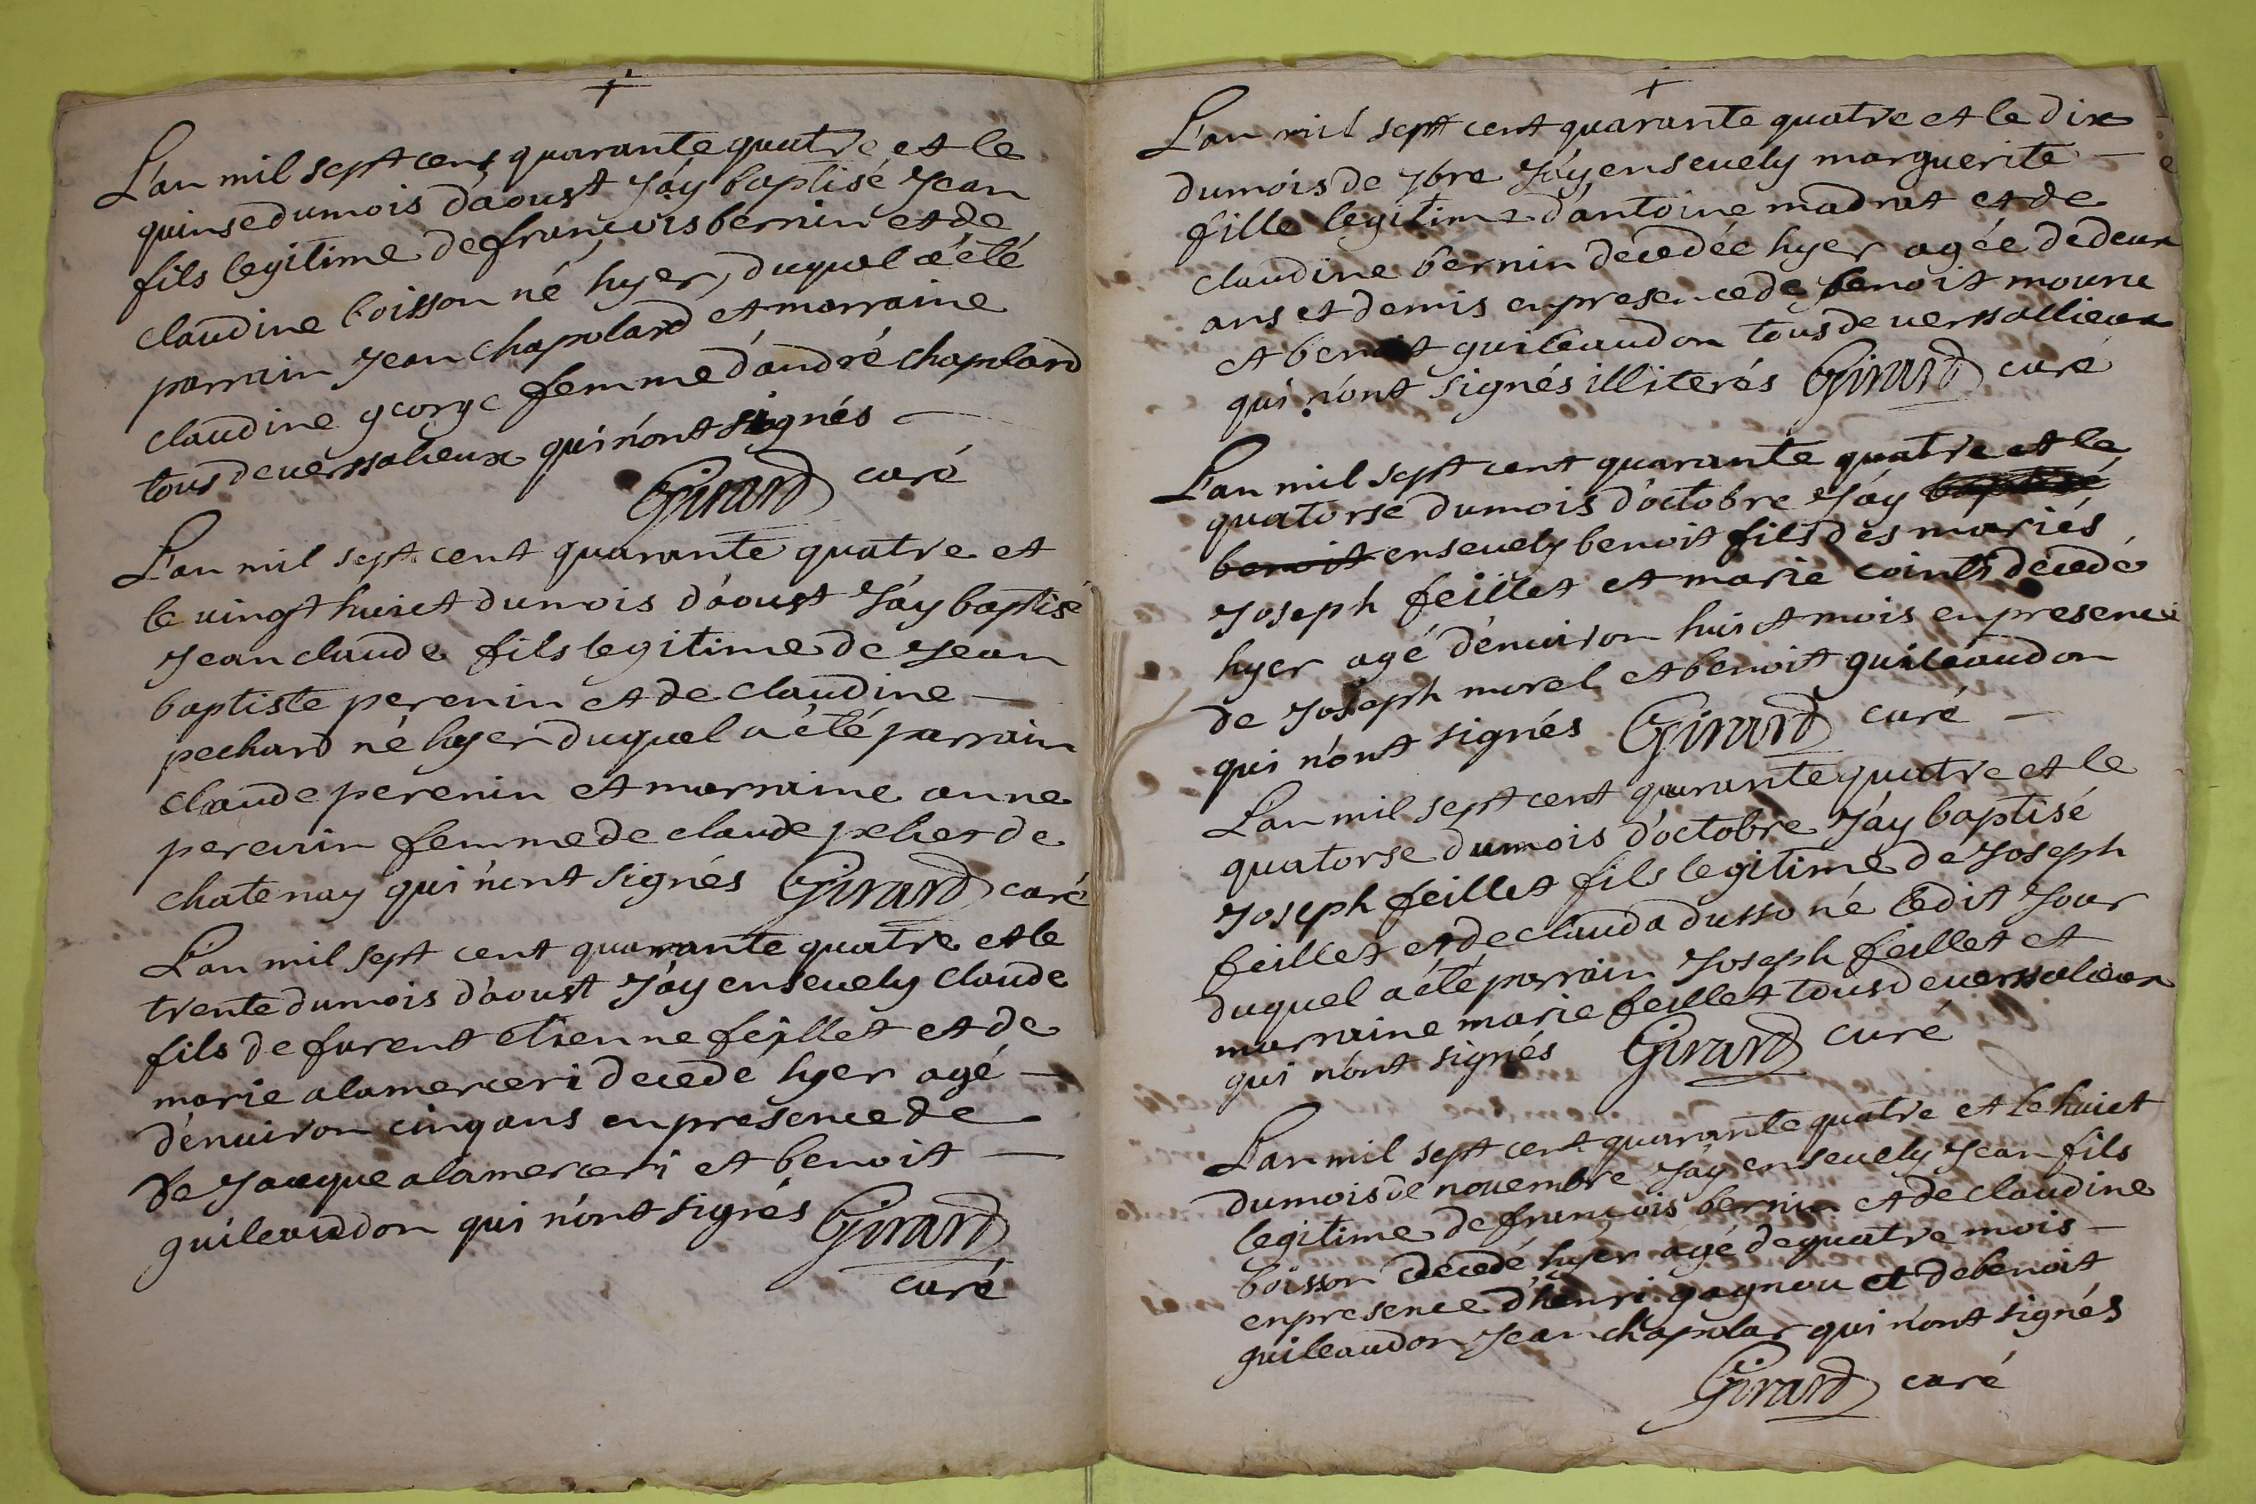 L'an mil sept cens quarante quatre et le
quinse du mois d'aoust J'ay baptisé Jean
fils legitime de françois bernin et de
claudine boisson né hyer, duquel a été
parrain Jean chapolard et marraine
claudine george femme d'andré chapolard
tous de verssalieux qui n'ont signés
Girard curé
L'an mil sept cent quarante quatre et
le vingt huict du mois d'aoust J'ay baptisé
Jean claude fils legitime de Jean
baptiste perenin et de claudine
pechard né hyer duquel a été parrain
claude perenin et marraine anne
perenin femme de claude pelier de
chatenay qui n'ont signés Girard curé
L'an mil sept cent quarante quatre et le
trente du mois d'aoust J'ay ensevely claude
fils de furent etienne feillet et de
marie alamerceri decede hyer agé
d'enuiron cinq ans en presence de
de Jacque alamerceri et benoit
guileaudon qui n'ont signés Girard
curé
L'an mil sept cent quarante quatre et le dix
du mois de 7bre J'ay ensevely marguerite
fille legitime d'antoine madrat et de
claudine bernin decedée hyer agée de deux
ans et demis en presence de benoit moune
et benoit guileaudon tous de verssallieux
qui n'ont signés illiterés Girard curé
L'an mil sept cent quarante quatre et le
quatorse du mois d'octobre J'ay baptisé
benoit ensevely benoit fils des mariés
Joseph feillet et marie cointi décédé
hyer agé d'enuiron huict mois en presence
de Joseph morel et benoit guileaudon
qui n'ont signés Girard curé
L'an mil sept cent quarante quatre et le
quatorse du mois d'octobre J'ay baptisé
Joseph feillet fils legitime de Joseph
feillet et de clauda dusso né ledit Jour
duquel a été parrain Joseph feillet et
marraine marie feillet tous de verssalieux
qui n'ont signés Girard curé
L'an mil sept cent quarante quatre et le huict
du mois de novembre J'ay ensevely Jean fils
legitime de françois bernin et de claudine
boisson décédé hyer agé de quatre mois
en presence d'henri gagnou et de benoit
guileaudon Jean chapolar qui n'ont signés
Girard curé